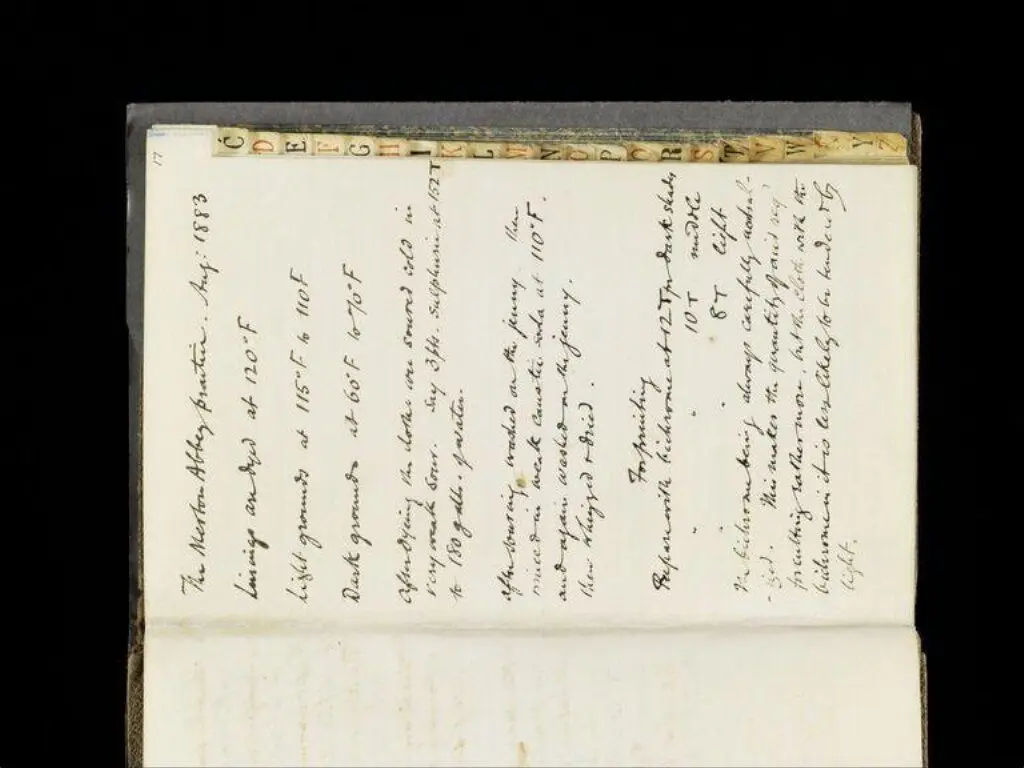 17
The Merton Abbey practice. Aug: 1883
Linings are dyed at 120°F
Light grounds at 115°F to 110F
Dark grounds at 60°F to 70°F
After dying the clothes are soured cold in
very weak sour. Say 3 pts. sulphuric at 152T
to 180 galls. of water.
After souring washed on the jenny then
in weak caustic soda at 110°F.
and again washed on the jenny.
then whizzed & dried.
For printing
Prepare with bichrome at 12T for dark shades
" " 10T middle
" " 8T light
The bichrome being always carefully neutral-
-ized. This makes the quantity of acid req
printing rather more, but the cloth with the
bichrome in it is less likely to be tendered by
light.
C D E F G H I K L M N O P Q R S T V W X Y Z